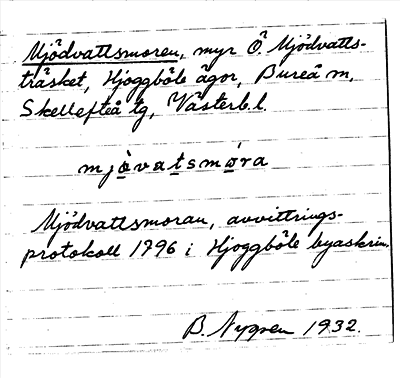 Mjödvattsmoren, myr Ö. Mjödvatts-
träsket, Hjoggböle ägor, Bureå sn,
Skellefteå tg, Västerb.l.
mjåvatsmøra
Mjödvattsmoran, avvittrings-
protokoll 1796 i Hjoggböle byaskrin.
B. Nygren 1932.